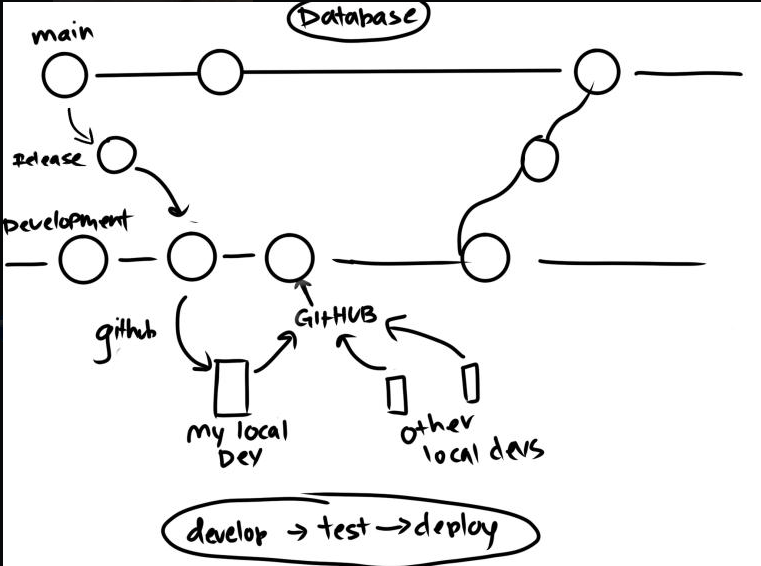 Database
main
Release
Development
github
GITHUB
my local
Dev
other
local devs
develop → test → deploy